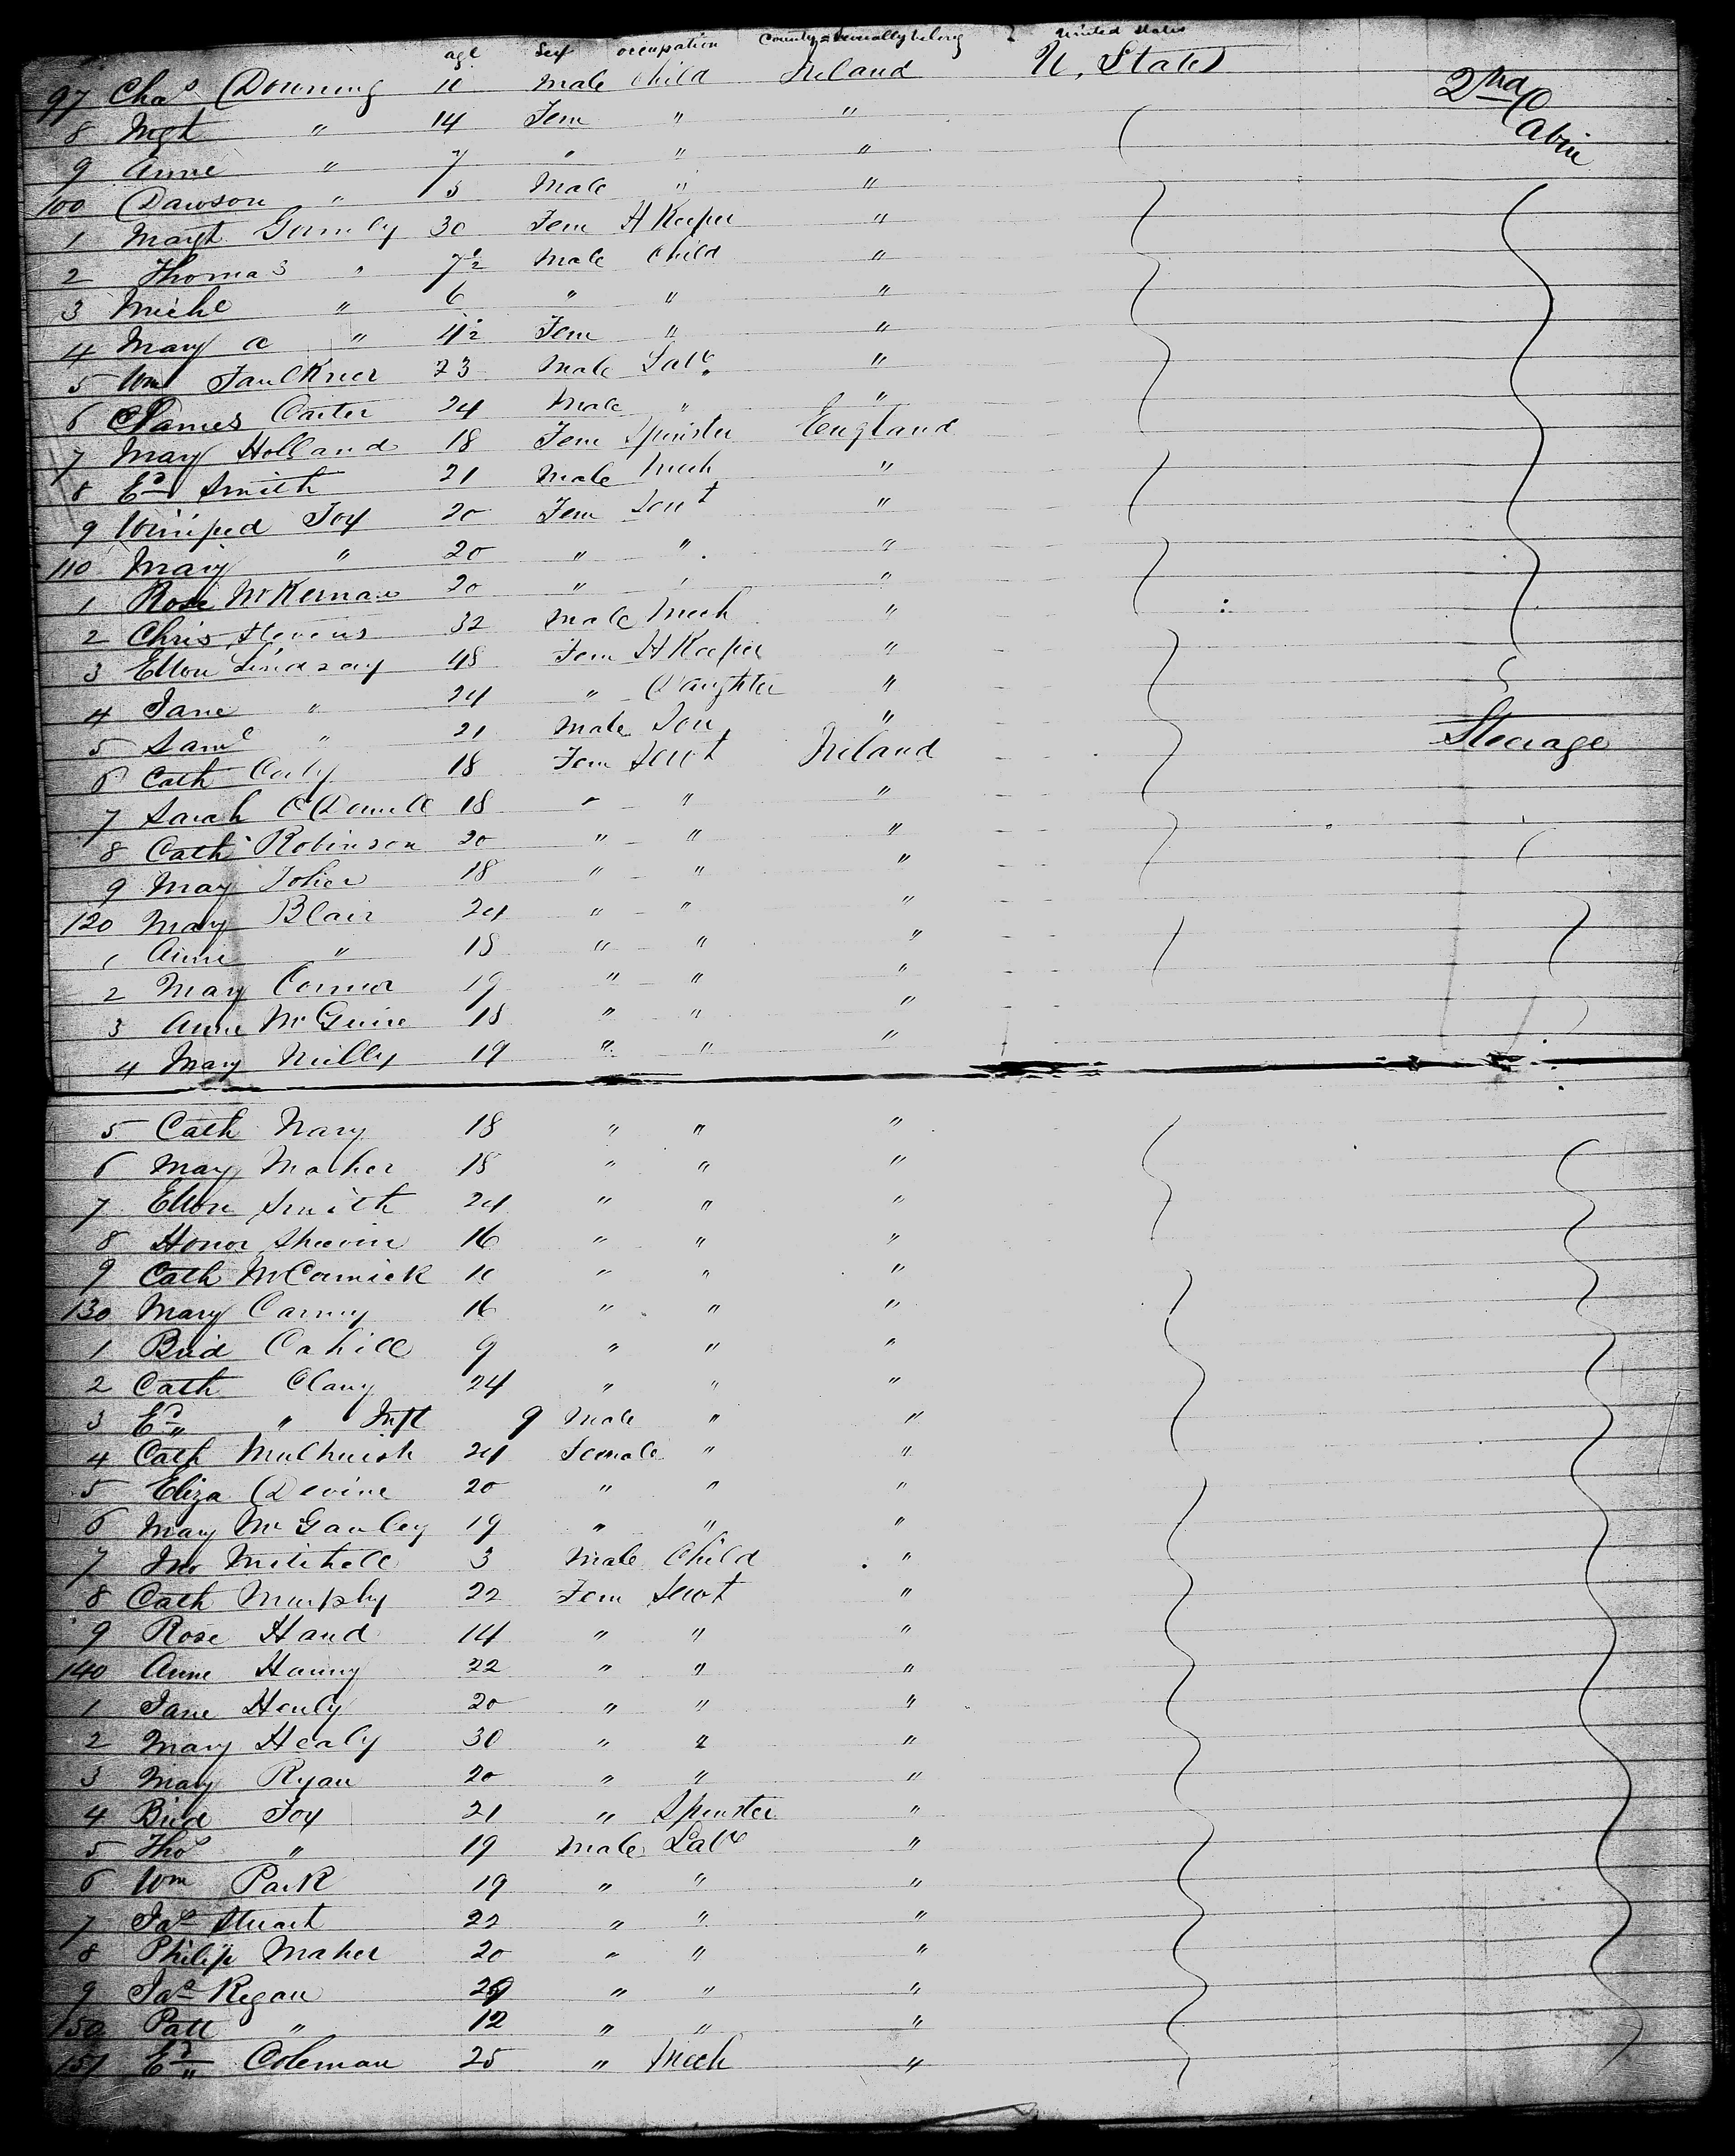 age Sex occupation Country severally belong United States
97 Chas Downing 11 Male Child Ireland U. States 2nd Cabin
8 Mgt " 14 Fem " "
9 Anne " 7 " " "
100 Dawson " 5 Male " "
1 Magt Gormly 30 Fem H Keeper "
2 Thomas " 7½ Male Child "
3 Michl " 6 " " "
4 Mary A " 4½ Fem " "
5 Wm Faulkner 23 Male Labr "
6 James Carter 24 Male " "
7 Mary Holland 18 Fem Spinster England
8 Ed Smith 21 Male Mech "
9 Winifred Foy 20 Fem Servt "
110 Mary " 20 " " "
1 Rose McKernan 20 " " "
2 Chris Stevens 32 Male Mech "
3 Ellen Lindsay 48 Fem H Keeper "
4 Jane " 24 " Daughter "
5 Saml " 21 Male Son " Steerage
6 Cath 18 Fem Servt Ireland
7 Sarah O'Donnell 18 " " "
8 Cath Robinson 20 " " "
9 Mary 18 " " "
120 Mary Blair 24 " " "
1 Anne " 18 " " "
2 Mary Connor 19 " " "
3 Anne McGuire 18 " " "
4 Mary 19 " " "
5 Cath Nary 18 " " "
6 Mary Maher 18 " " "
7 Ellen Smith 24 " " "
8 Honor 16 " " "
9 Cath McCormick 11 " " "
130 Mary Carney 16 " " "
1 Brid Cahill 9 " " "
2 Cath Clany 24 " " "
3 Ed " Inft 9 Male " "
4 Cath 24 Female " "
5 Eliza Devine 20 " " "
6 Mary McGauley 19 " " "
7 Jno Mitchell 3 Male Child "
8 Cath Murphy 22 Fem Servt "
9 Rose Hand 14 " " "
140 Anne Hanny 22 " " "
1 Jane Henly 20 " " "
2 Mary Healy 30 " " "
3 Mary Ryan 20 " " "
4 Brid Foy 21 " Spinster "
5 Thos " 19 Male Labr "
6 Wm Park 19 " " "
7 Jas Stuart 22 " " "
8 Philip Maher 20 " " "
9 Jas Regan 29 " " "
150 Patt " 12 " " "
151 Ed Coleman 25 " Mech "